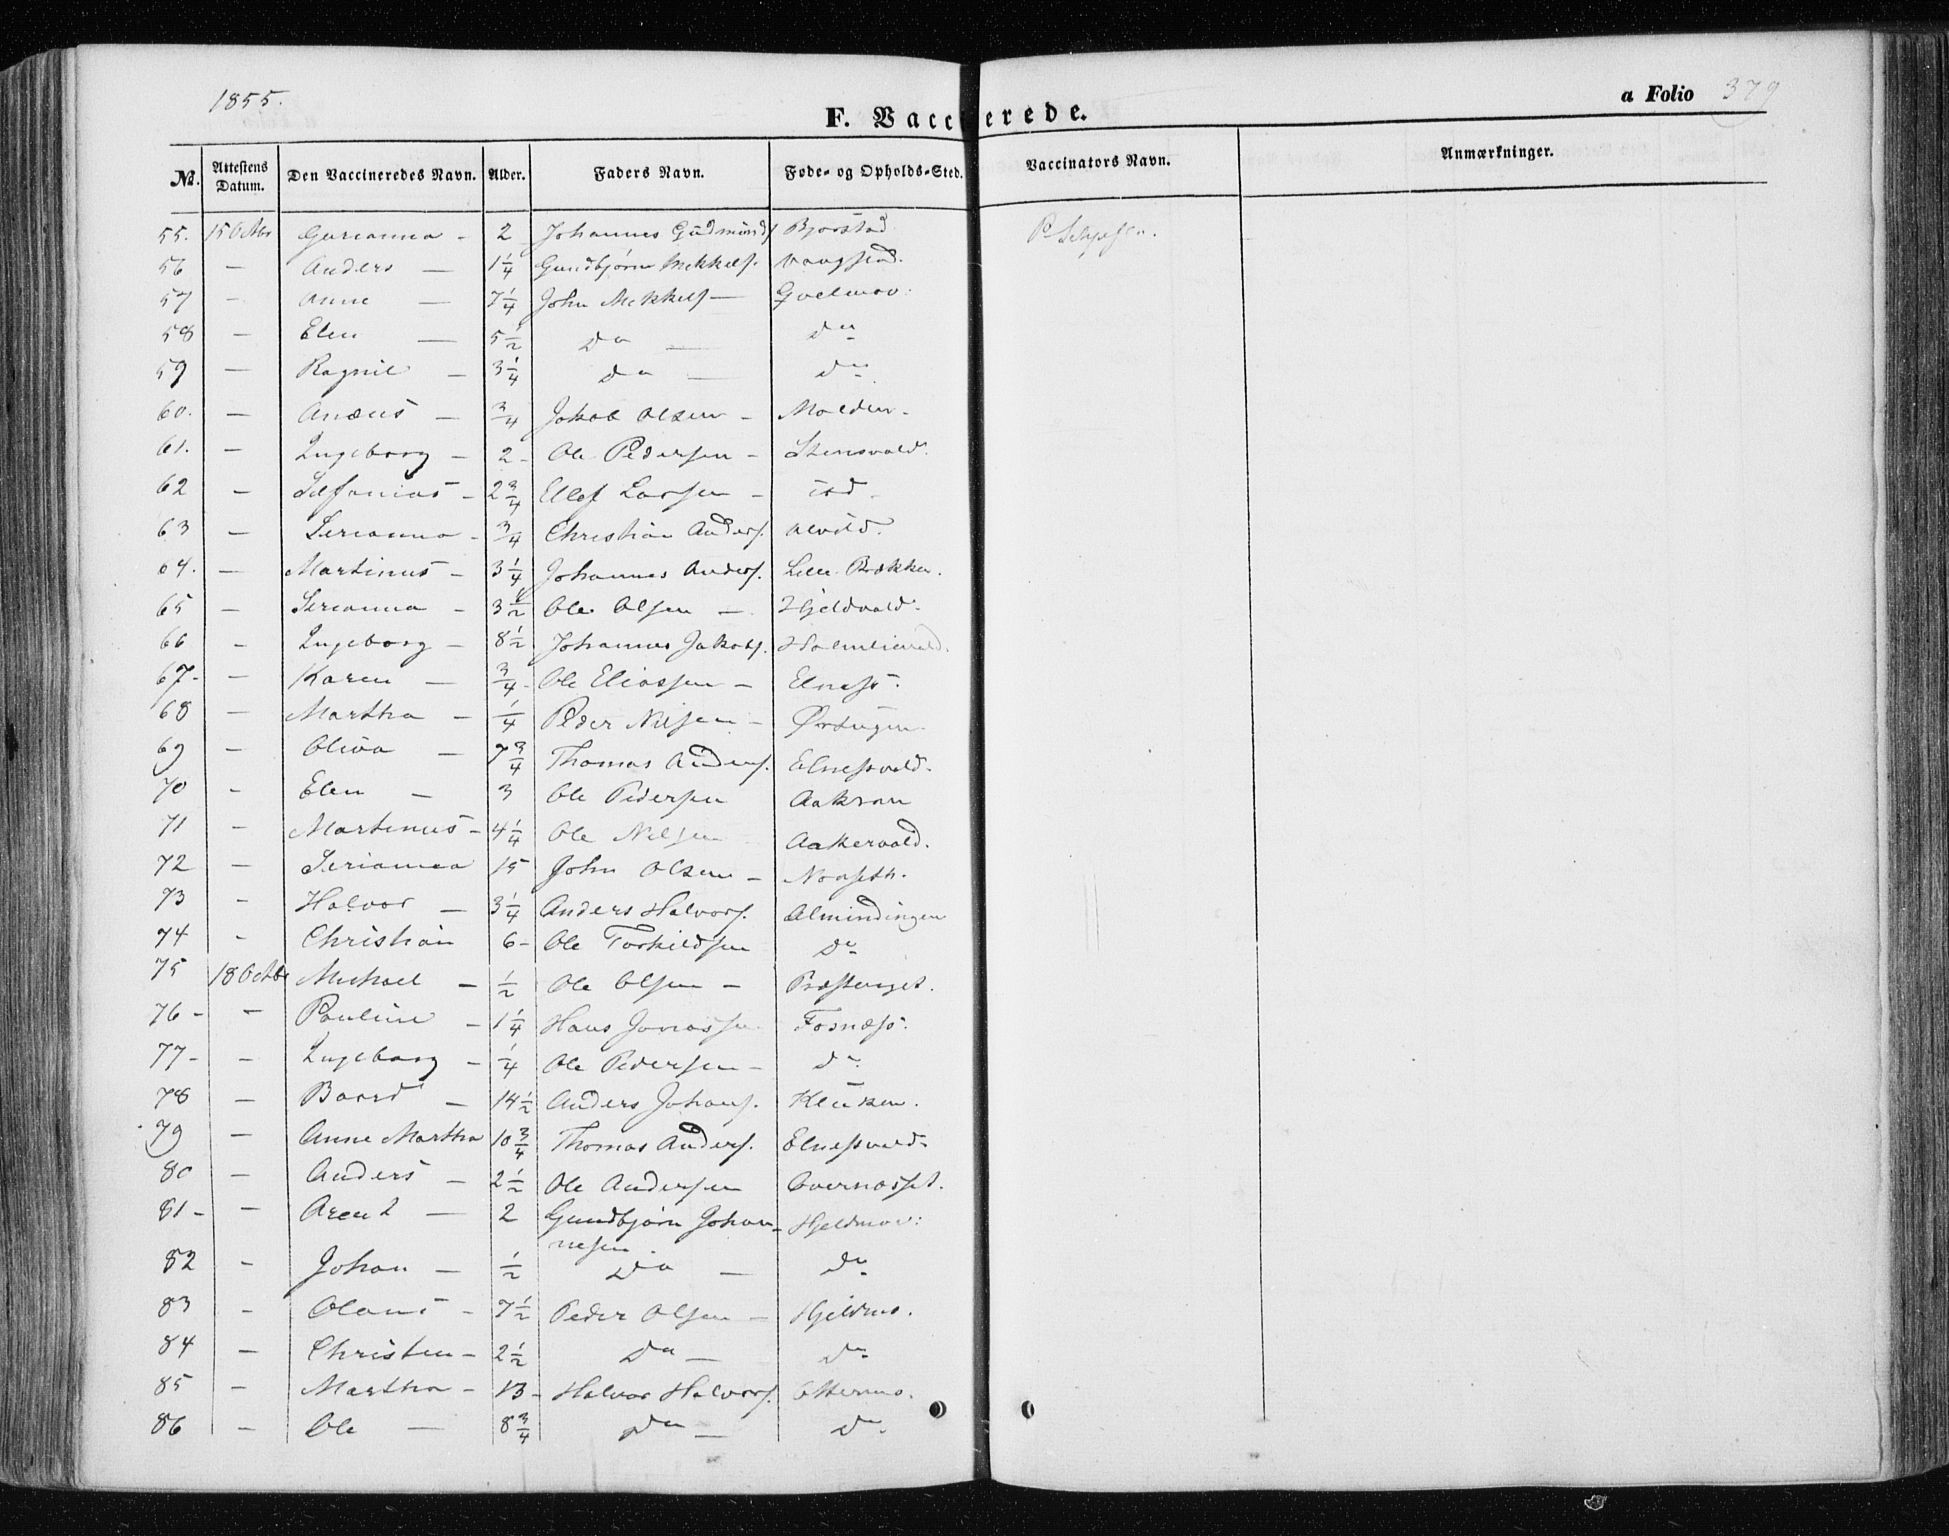 1855.
a Folio 379
F. Vaccinerede.
No. Attestens Datum. Den Vaccineredes Navn. Alder. Faders Navn. Føde- og Opholds-Sted. Vaccinators Navn. Anmærkninger.
55. 15 Octbr Gurianna - 2 Johannes Gudmunds Bjørstad
56 - Anders - 1 1/4 Gundbjørn Mekkels. Vaagstad.
57 - Anne - 7 1/4 John Mekkels -
58 - Elen - 5 1/2 Do - Do
59 - Ragnil - 3 1/4 Do - Do
60. - Anæus - 3/4 Jakob Olsen - Molden.
61. - Ingeborg - 2 - Ole Pedersen - Stensvald.
62 - - 2 3/4 Ellef Larsen -
63 - Serianna - 3/4 Christian Anders.
64. - Martinus - 3 1/4 Johannes Anders. Lille Brekken.
65 - Serianna - 3 1/2 Ole Olsen - Hjeldvald.
66 - Ingeborg - 8 1/2 Johannes Jakobs. Holmlivald.
67 - Karen - 3/4 - Ole Eliassen - Elness.
68 - Martha - 1/4 Peder Nilsen -
69 - Oliva - 7 3/4 Thomas Anders. Elnessvald.
70 - Elen - 3 Ole Pedersen Aakran
71 - Martinus - 4 1/4 Ole Nilsen Aakervald.
72 - Serianna 15 John Olsen - Noaseth.
73 - Halvor - 3 1/4 Anders Halvors. Almindingen
74 - Christian 6 - Ole Torkildsen Do
75 18 Octbr Michael - 1/2 Ole Olsen - Præstenget.
76 - - Pauline - 1 1/4 Hans Jonassen Fosnæss.
77 - - Ingeborg - 1/4 Ole Pedersen - Do
78 - Baard - 14 1/2 Anders Johans. Klukken.
79 - Anne Martha 10 3/4 Thomas Anders. Elnessvald.
80 - Anders - 2 1/2 Ole Andersen Overnasset.
81 - - Arent - 2 Gundbjørn Johan- Hjeldmov:
nesen
82 - Johan - 1/2 Do - Do
83 - Olaus - 7 1/2 Peder Olsen - Hjeldmo.
84 - Christen - 2 1/2 Do - Do
85 - Martha - 13 - Halvor Halvors. Ottermo.
86 - Ole - 8 3/4 Do - Do